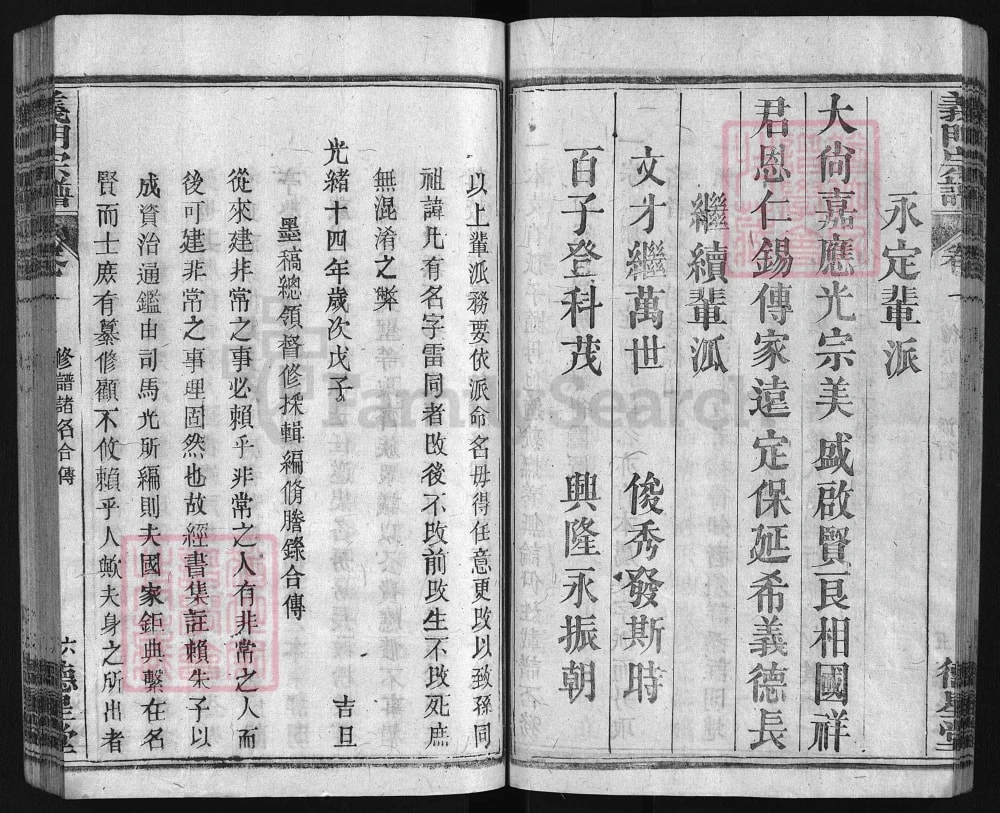 義門宗譜
卷一
德星堂
永定輩派
大尙嘉應光宗美盛啟賢良相國祥
君恩仁錫傳家遠定保延希義德長
繼續輩派
文才繼萬世 俊秀發斯時
百子登科茂 興隆永振朝
以上輩派務要依派命名毋得任意更改以致孫同
祖諱凢有名字雷同者改後不改前改生不改死庶
無混淆之弊
光緒十四年歲次戊子 吉旦
墨稿總領督修採輯編脩謄錄合傳
從來建非常之事必賴乎非常之人有非常之人而
後可建非常之事理固然也故經書集註賴朱子以
成資治通鑑由司馬光所編則夫國家鉅典繫在名
賢而士庶有纂修顧不攸賴乎人歟夫身之所出者
義門宗譜
修譜諸名合傳
六
德星堂
FamilySearch